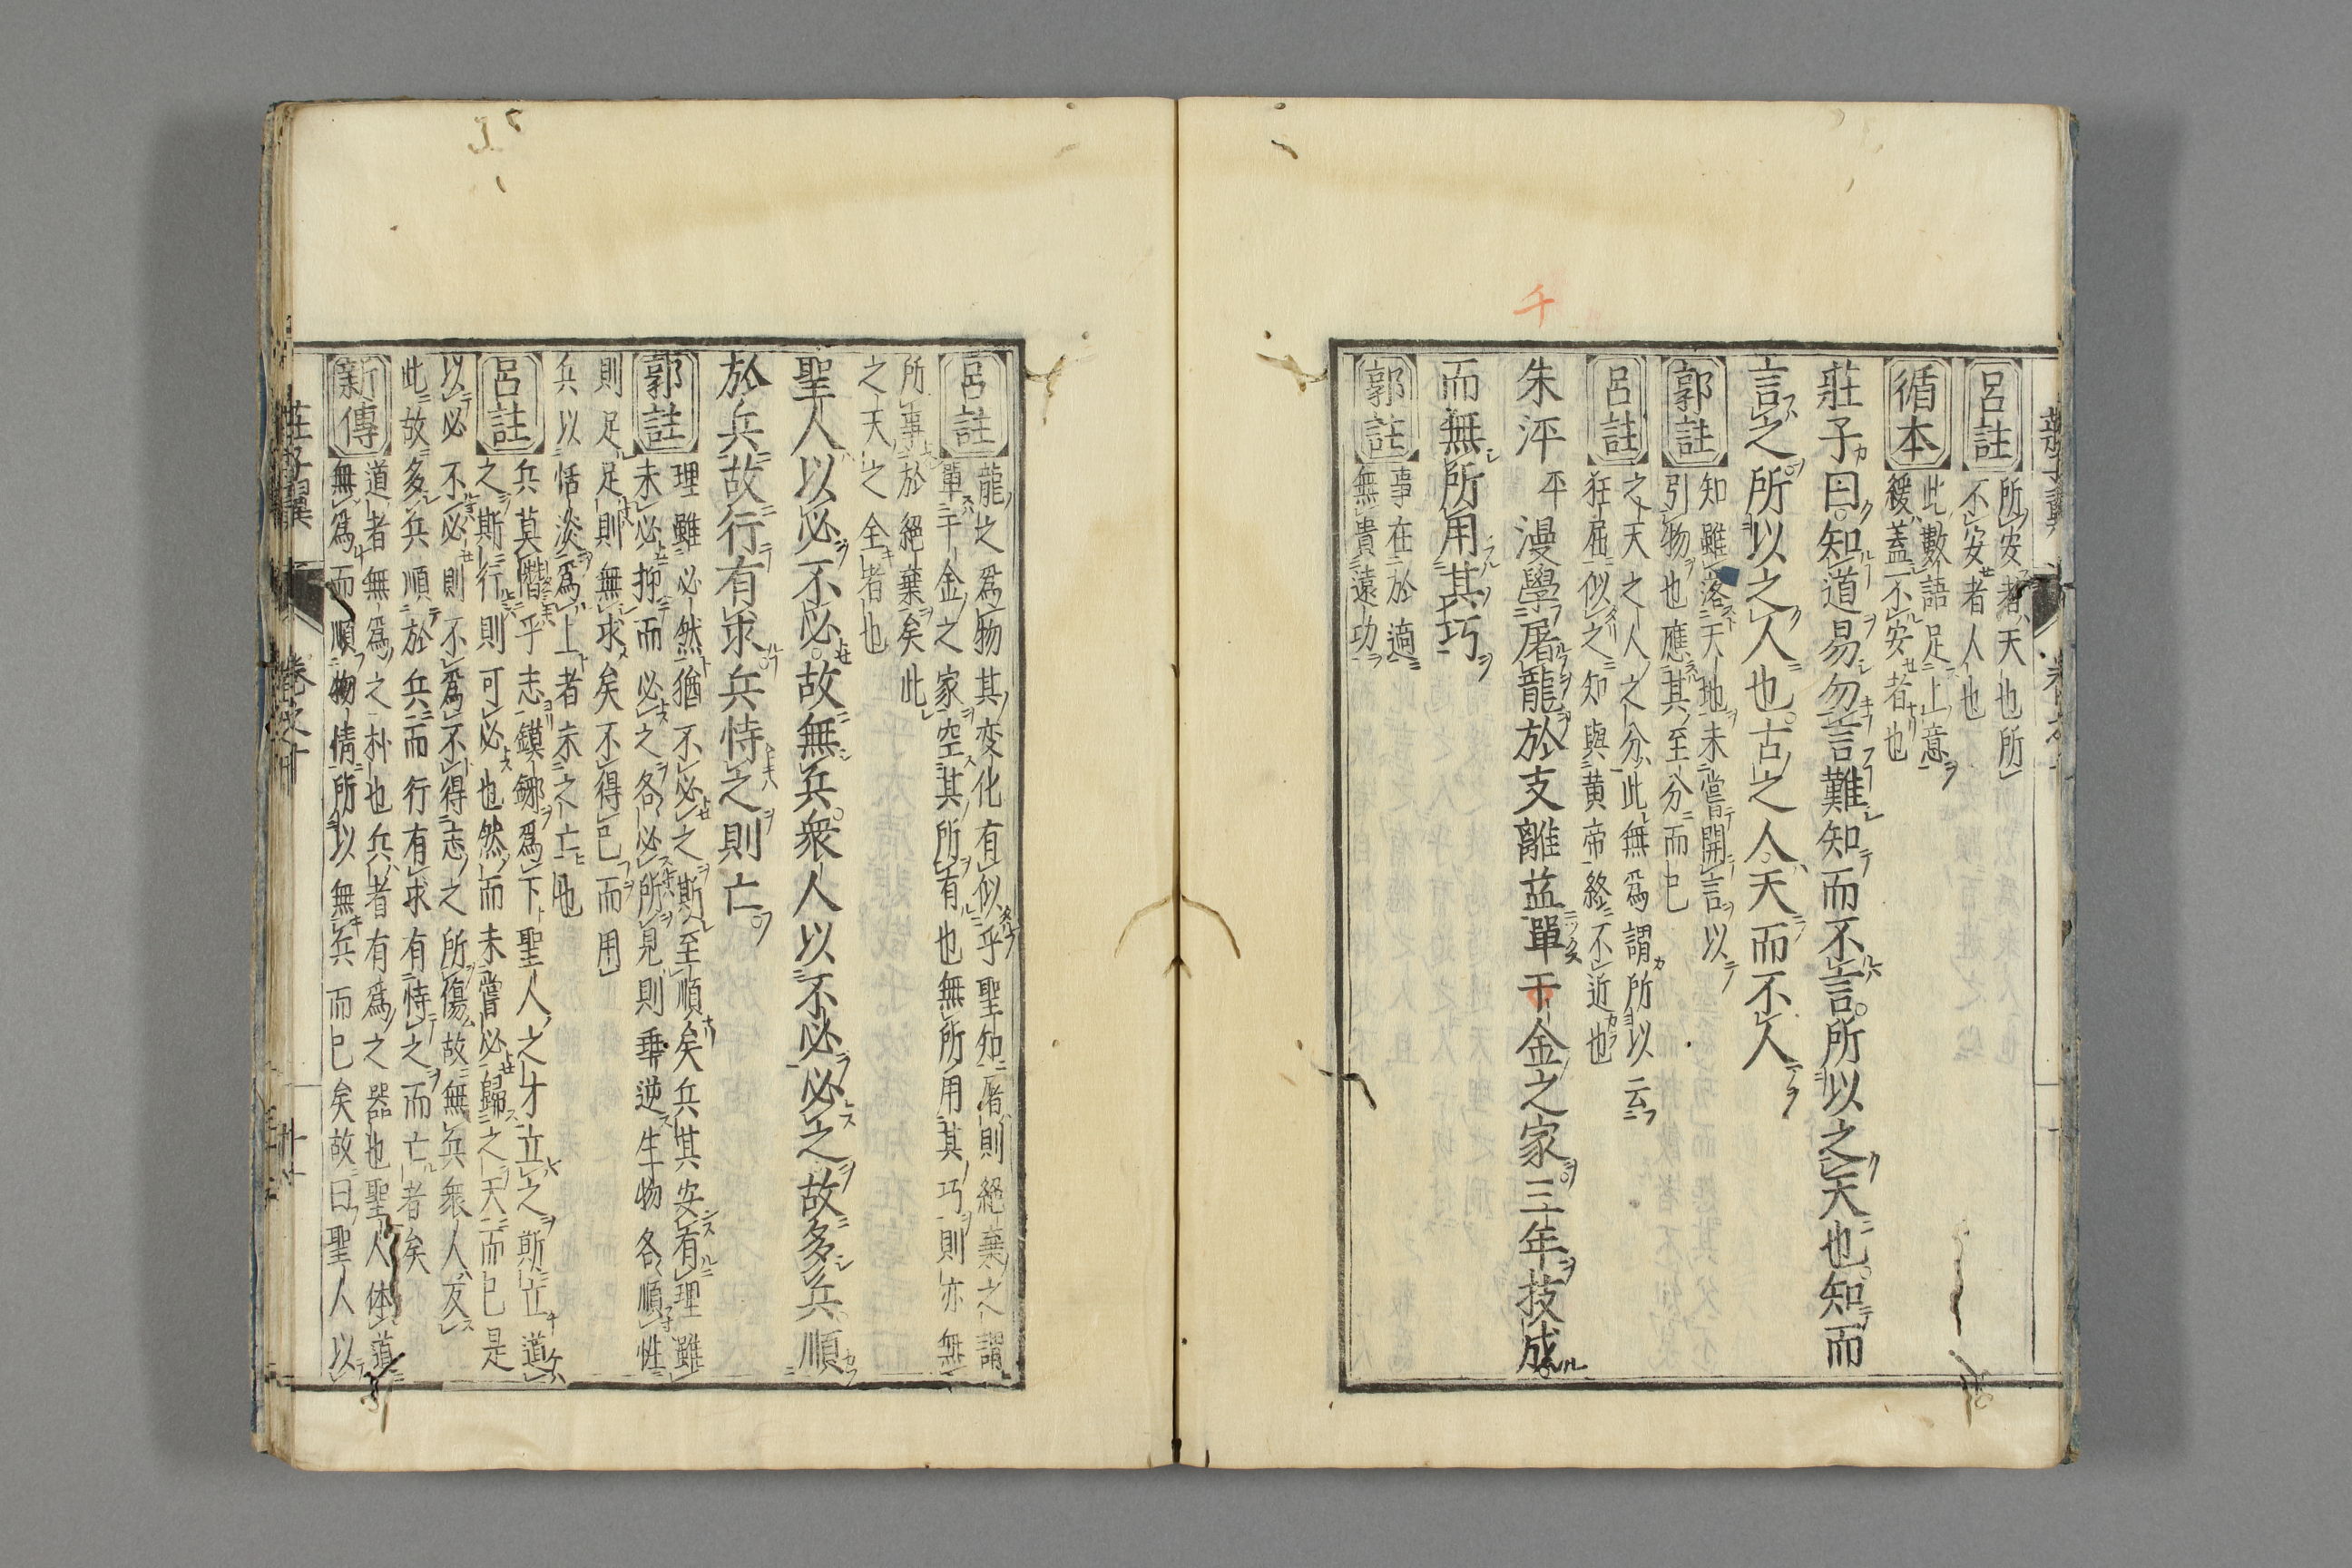 呂註
所安者天也所
不安者人也
循本
此數語足上意
緩蓋不安者也
莊子曰知道易勿言難知而不言所以之天也知而
言之所以之人也古之人天而不人
郭註
知雖落天地未嘗開言以
引物也應其至分而已
呂註
之天之人之分此無爲謂所以云
狂屈似之知與黄帝終不近也
千
朱泙平漫學屠龍於支離益單千金之家三年技成
而無所用其巧
郭註
事在於適
無貴遠功
呂註
龍之爲物其変化有似乎聖知屠則絕棄之謂
單千金之家空其所有也無所用其巧則亦無
所事於絕棄矣此
之天之全者也
聖人以必不必故無兵衆人以不必必之故多兵順
於兵故行有求兵恃之則亡
郭註
理雖必然猶不必之斯至順矣兵其安有理雖
未必抑而必之各必所見則乖逆生物各順性
則足足則無求矣不得已而用
兵以恬淡爲上者未之亡也
呂註
兵莫憯乎志鏌鋣爲下聖人之才立之斯立道
之斯行則可必也然而未嘗必歸之天而已是
以必不必則不爲不得志之所傷故無兵衆人反
此故多兵順於兵而行有求有恃之而亡者矣
新傳
道者無爲之朴也兵者有爲之器也聖人体道
無爲而順物情所以無兵而已矣故曰聖人以
莊子翼 卷之十